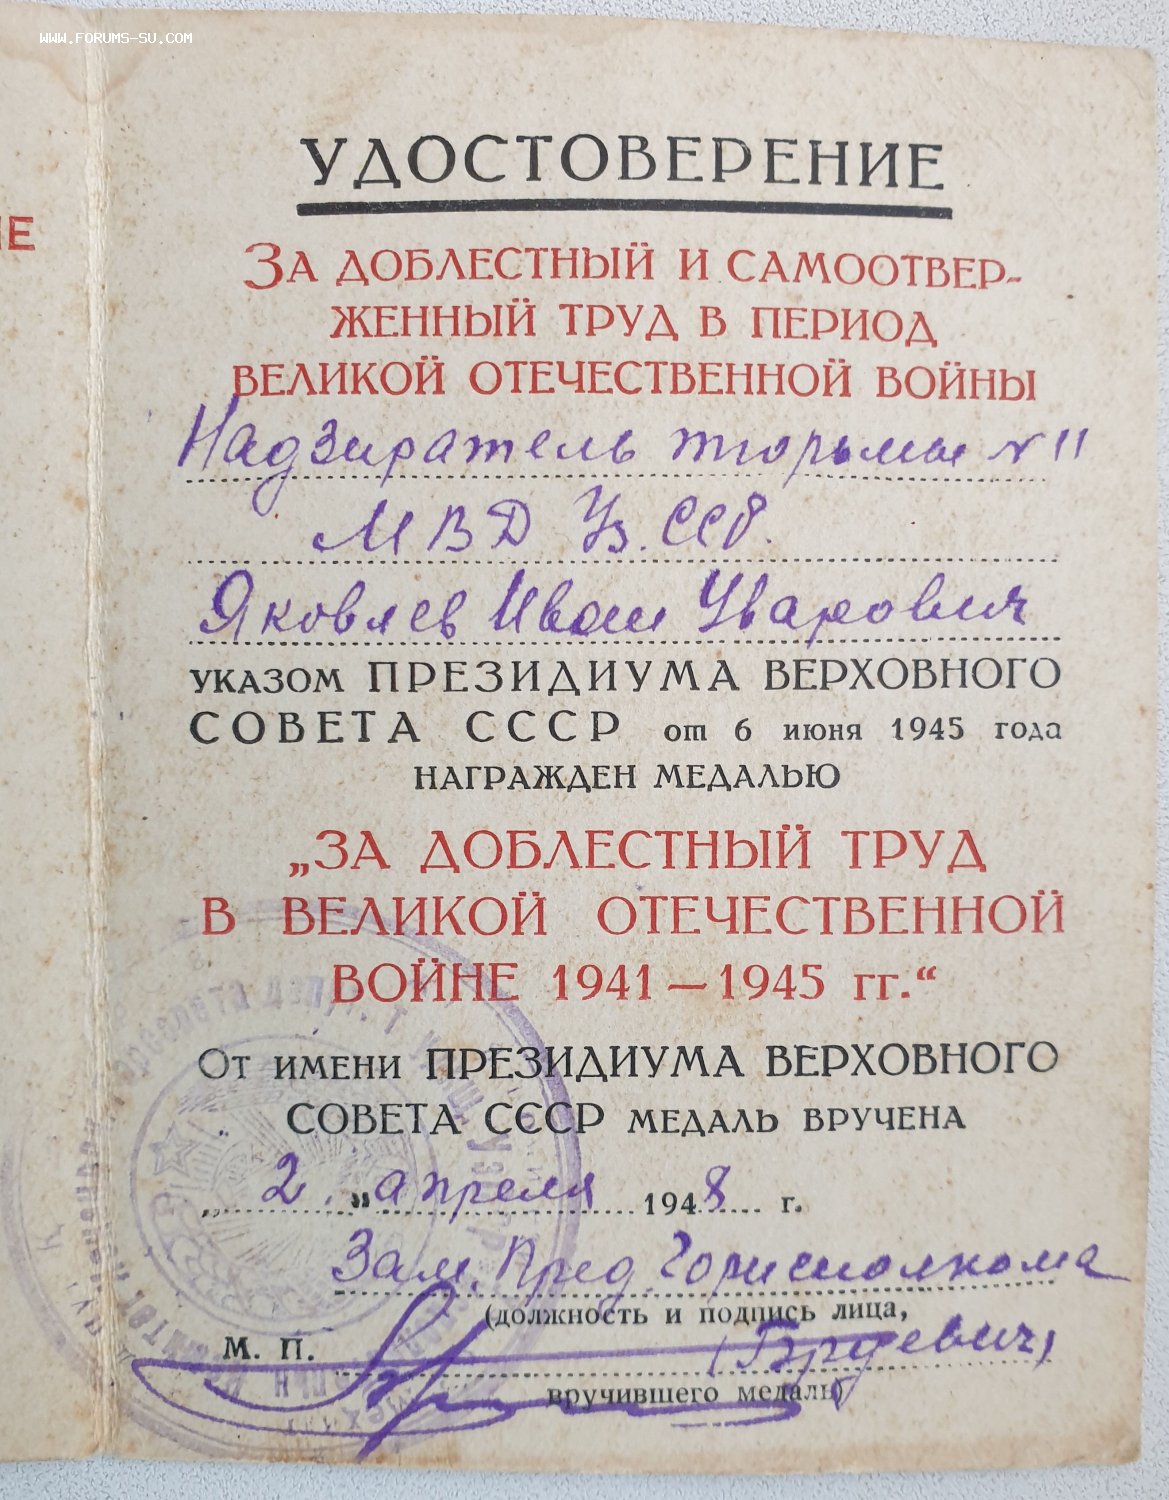 WWW.FORUMS-SU.COM
ИЕ
УДОСТОВЕРЕНИЕ
ЗА ДОБЛЕСТНЫЙ И САМООТВЕР-
ЖЕННЫЙ ТРУД В ПЕРИОД
ВЕЛИКОЙ ОТЕЧЕСТВЕННОЙ ВОЙНЫ
Надзиратель тюрьмы N 11
МВД Уз. ССР.
Яковлев Иван Уварович
УКАЗОМ ПРЕЗИДИУМА ВЕРХОВНОГО
СОВЕТА СССР от 6 июня 1945 года
НАГРАЖДЕН МЕДАЛЬЮ
„ЗА ДОБЛЕСТНЫЙ ТРУД
В ВЕЛИКОЙ ОТЕЧЕСТВЕННОЙ
ВОЙНЕ 1941—1945 гг.“
ОТ ИМЕНИ ПРЕЗИДИУМА ВЕРХОВНОГО
СОВЕТА СССР МЕДАЛЬ ВРУЧЕНА
„2.„ апреля 1948 г.
Зам. Пред. Горисполкома
(должность и подпись лица,
М. П.
вручившего медаль)